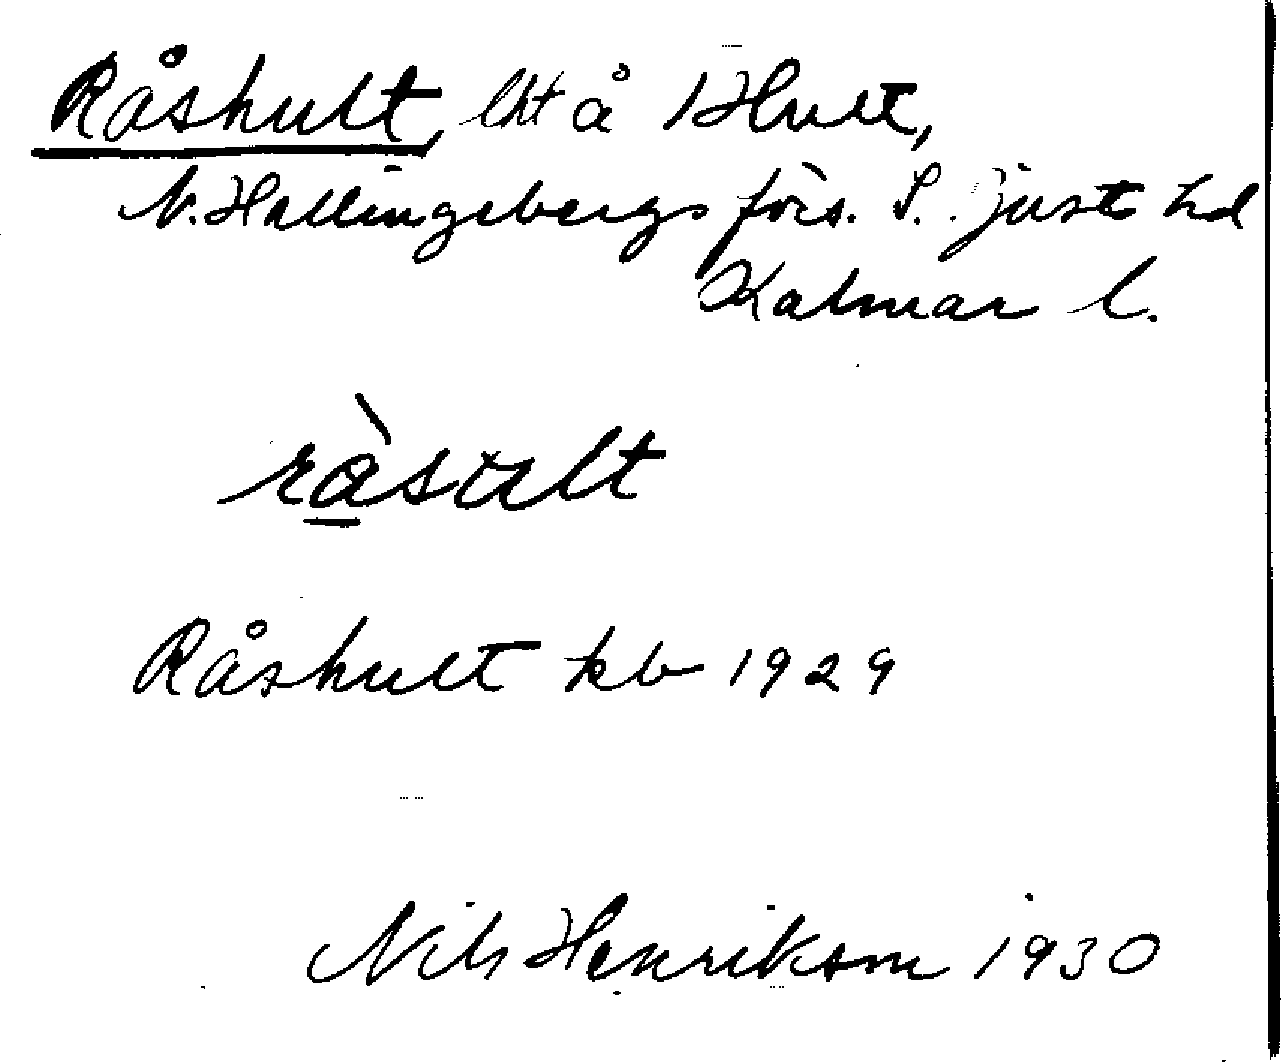 Råshult, lht å Hult,
V. Hallingebergs förs. S. Tjusts hd
Kalmar l.
ràsult
Råshult kb 1929
Nils Henrikson 1930